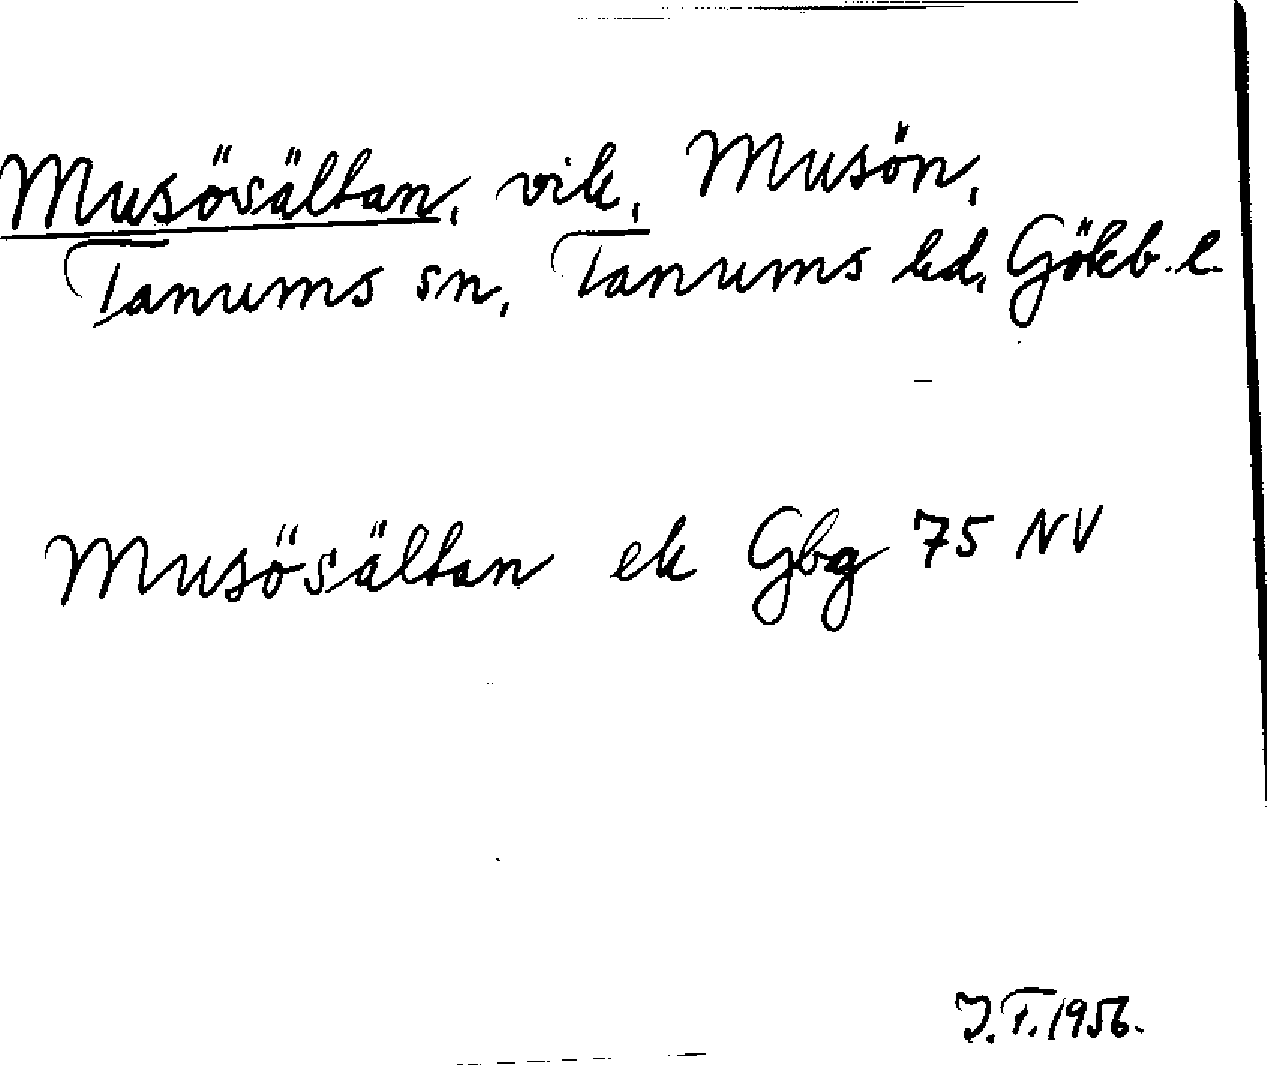 Musösältan, vik, Musön,
Tanums sn, Tanums hd, Gökb. l.
Musösältan ek Gbg 75 NV
J.T. 1956.